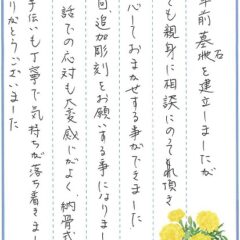 年前 墓地を建立しましたが
ても親身に相談にのって頂き
心しておまかせする事ができました
回、追加彫刻をお願いする事になりまし
話での応対も大変感じがよく、納骨式
手伝いも丁寧で気持ちが落ち着きまし
りがとうございました